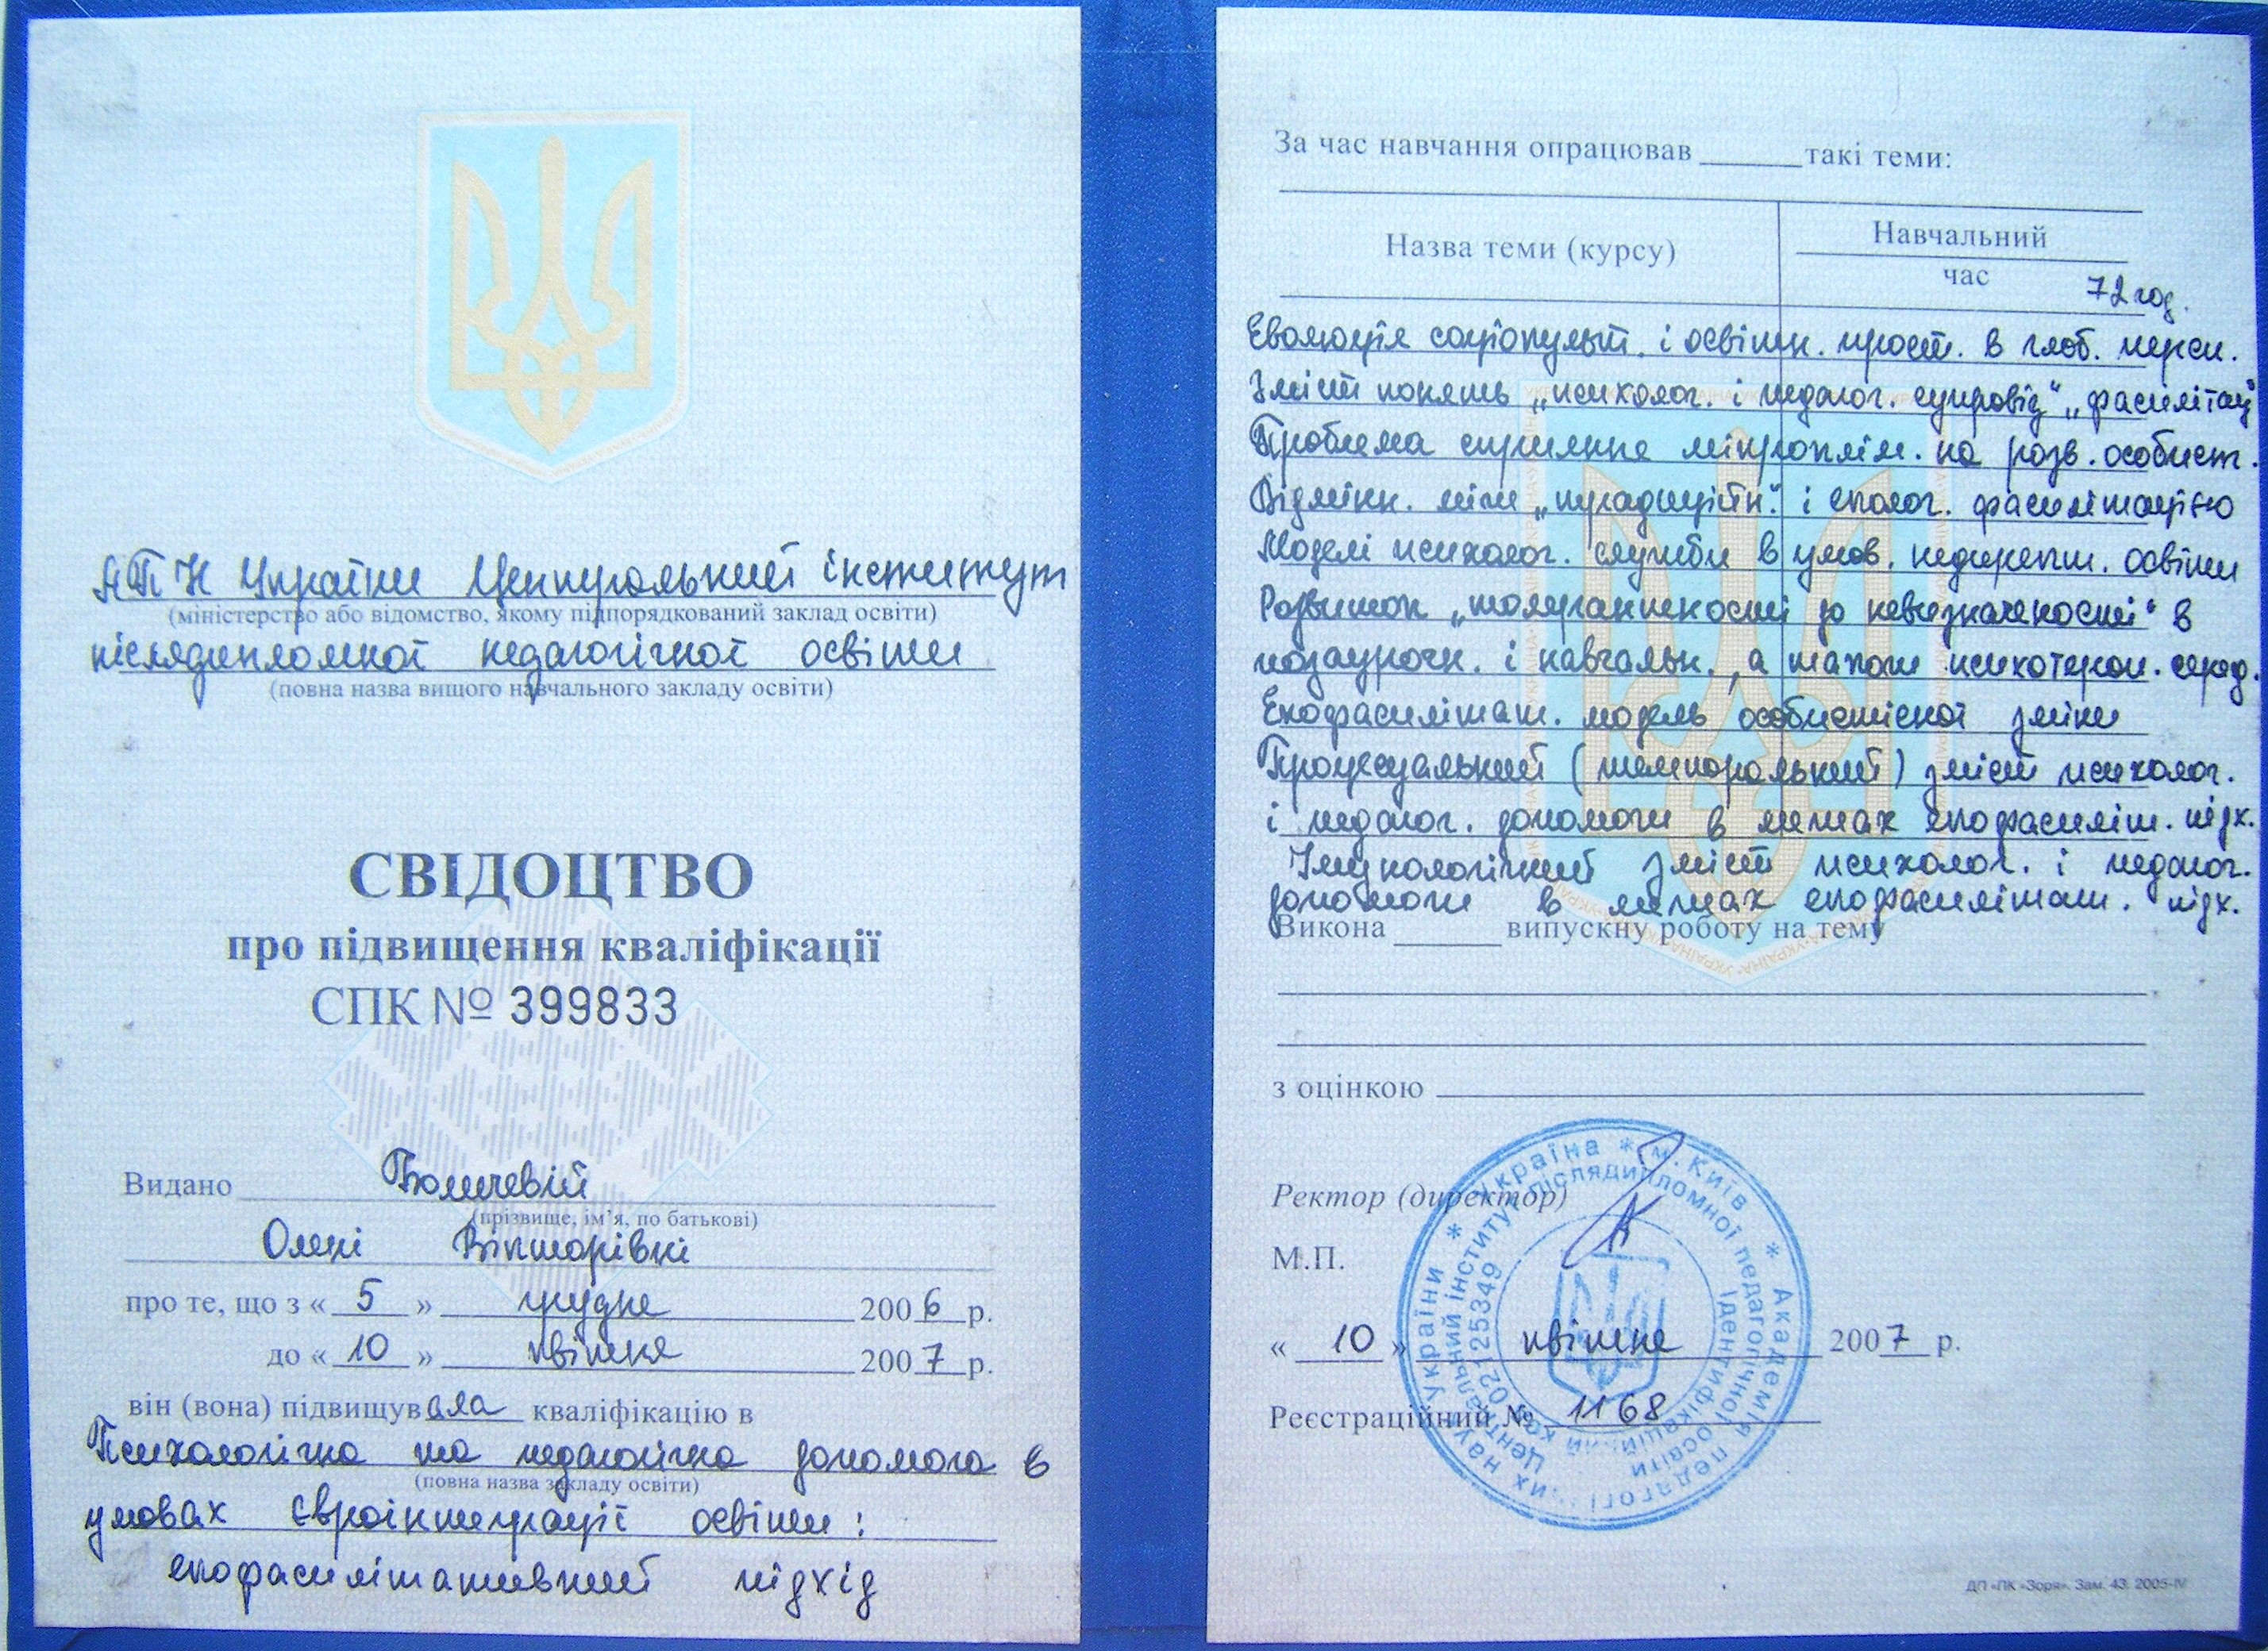 АПН України Центральний інститут
(міністерство або відомство, якому підпорядкований заклад освіти)
післядипломної педагогічної освіти
(повна назва вищого навчального закладу освіти)
СВІДОЦТВО
про підвищення кваліфікації
СПК № 399833
Видано
(прізвище, ім’я, по батькові)
Олені Вікторівні
про те, що з « 5 » грудня 2006 р.
до « 10 » квітня 2007 р.
він (вона) підвищувала кваліфікацію в
Психологічна та педагогічна допомога в
(повна назва закладу освіти)
умовах євроінтеграції освіти:
екофасилітативний підхід
За час навчання опрацював такі теми:
Назва теми (курсу) Навчальний
час
72 год.
Еволюція соціокульт. і освітн. прост. в глоб. персп.
Зміст понять „психолог. і педагог. супровід“ „фасилітац“
Проблема сприяння мікроклім. на розв. особист.
Відмінн. між „традиційн.“ і еколог. фасилітацією
Моделі психолог. служби в умов. недирект. освіти
Розвиток „толерантності до невизначеності“ в
позаурочн. і навчальн., а також психотерап. серед.
Екофасилітат. модель особистісної зміни
Процесуальний (темпоральний) зміст психолог.
і педагог. допомоги в межах екофасиліт. підх.
Імунологічний зміст психолог. і педагог.
допомоги в межах екофасилітат. підх.
Викона випускну роботу на тему
з оцінкою
Ректор (директор)
М.П.
« 10 » квітня 2007 р.
Реєстраційний № 1168
* Україна * м. Київ * Академія педагогічних наук України
Центральний інститут післядипломної педагогічної освіти
Ідентифікаційний код 02125349
ДП «ПК «Зоря». Зам. 43. 2005-IV